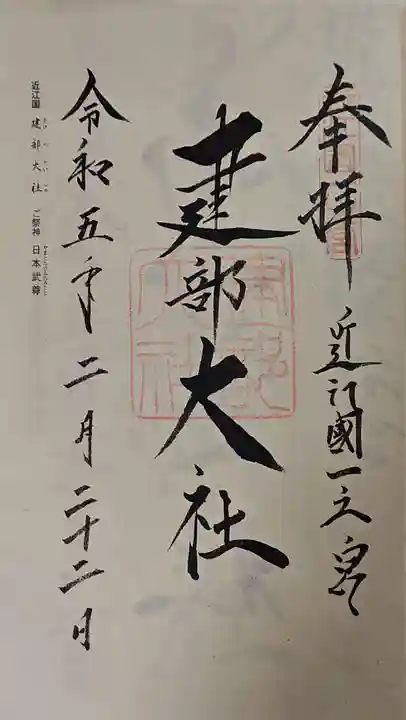 奉拝
近江國一之宮
建部大社
令和五年二月二十二日
近江国 建部大社 ご祭神 日本武尊